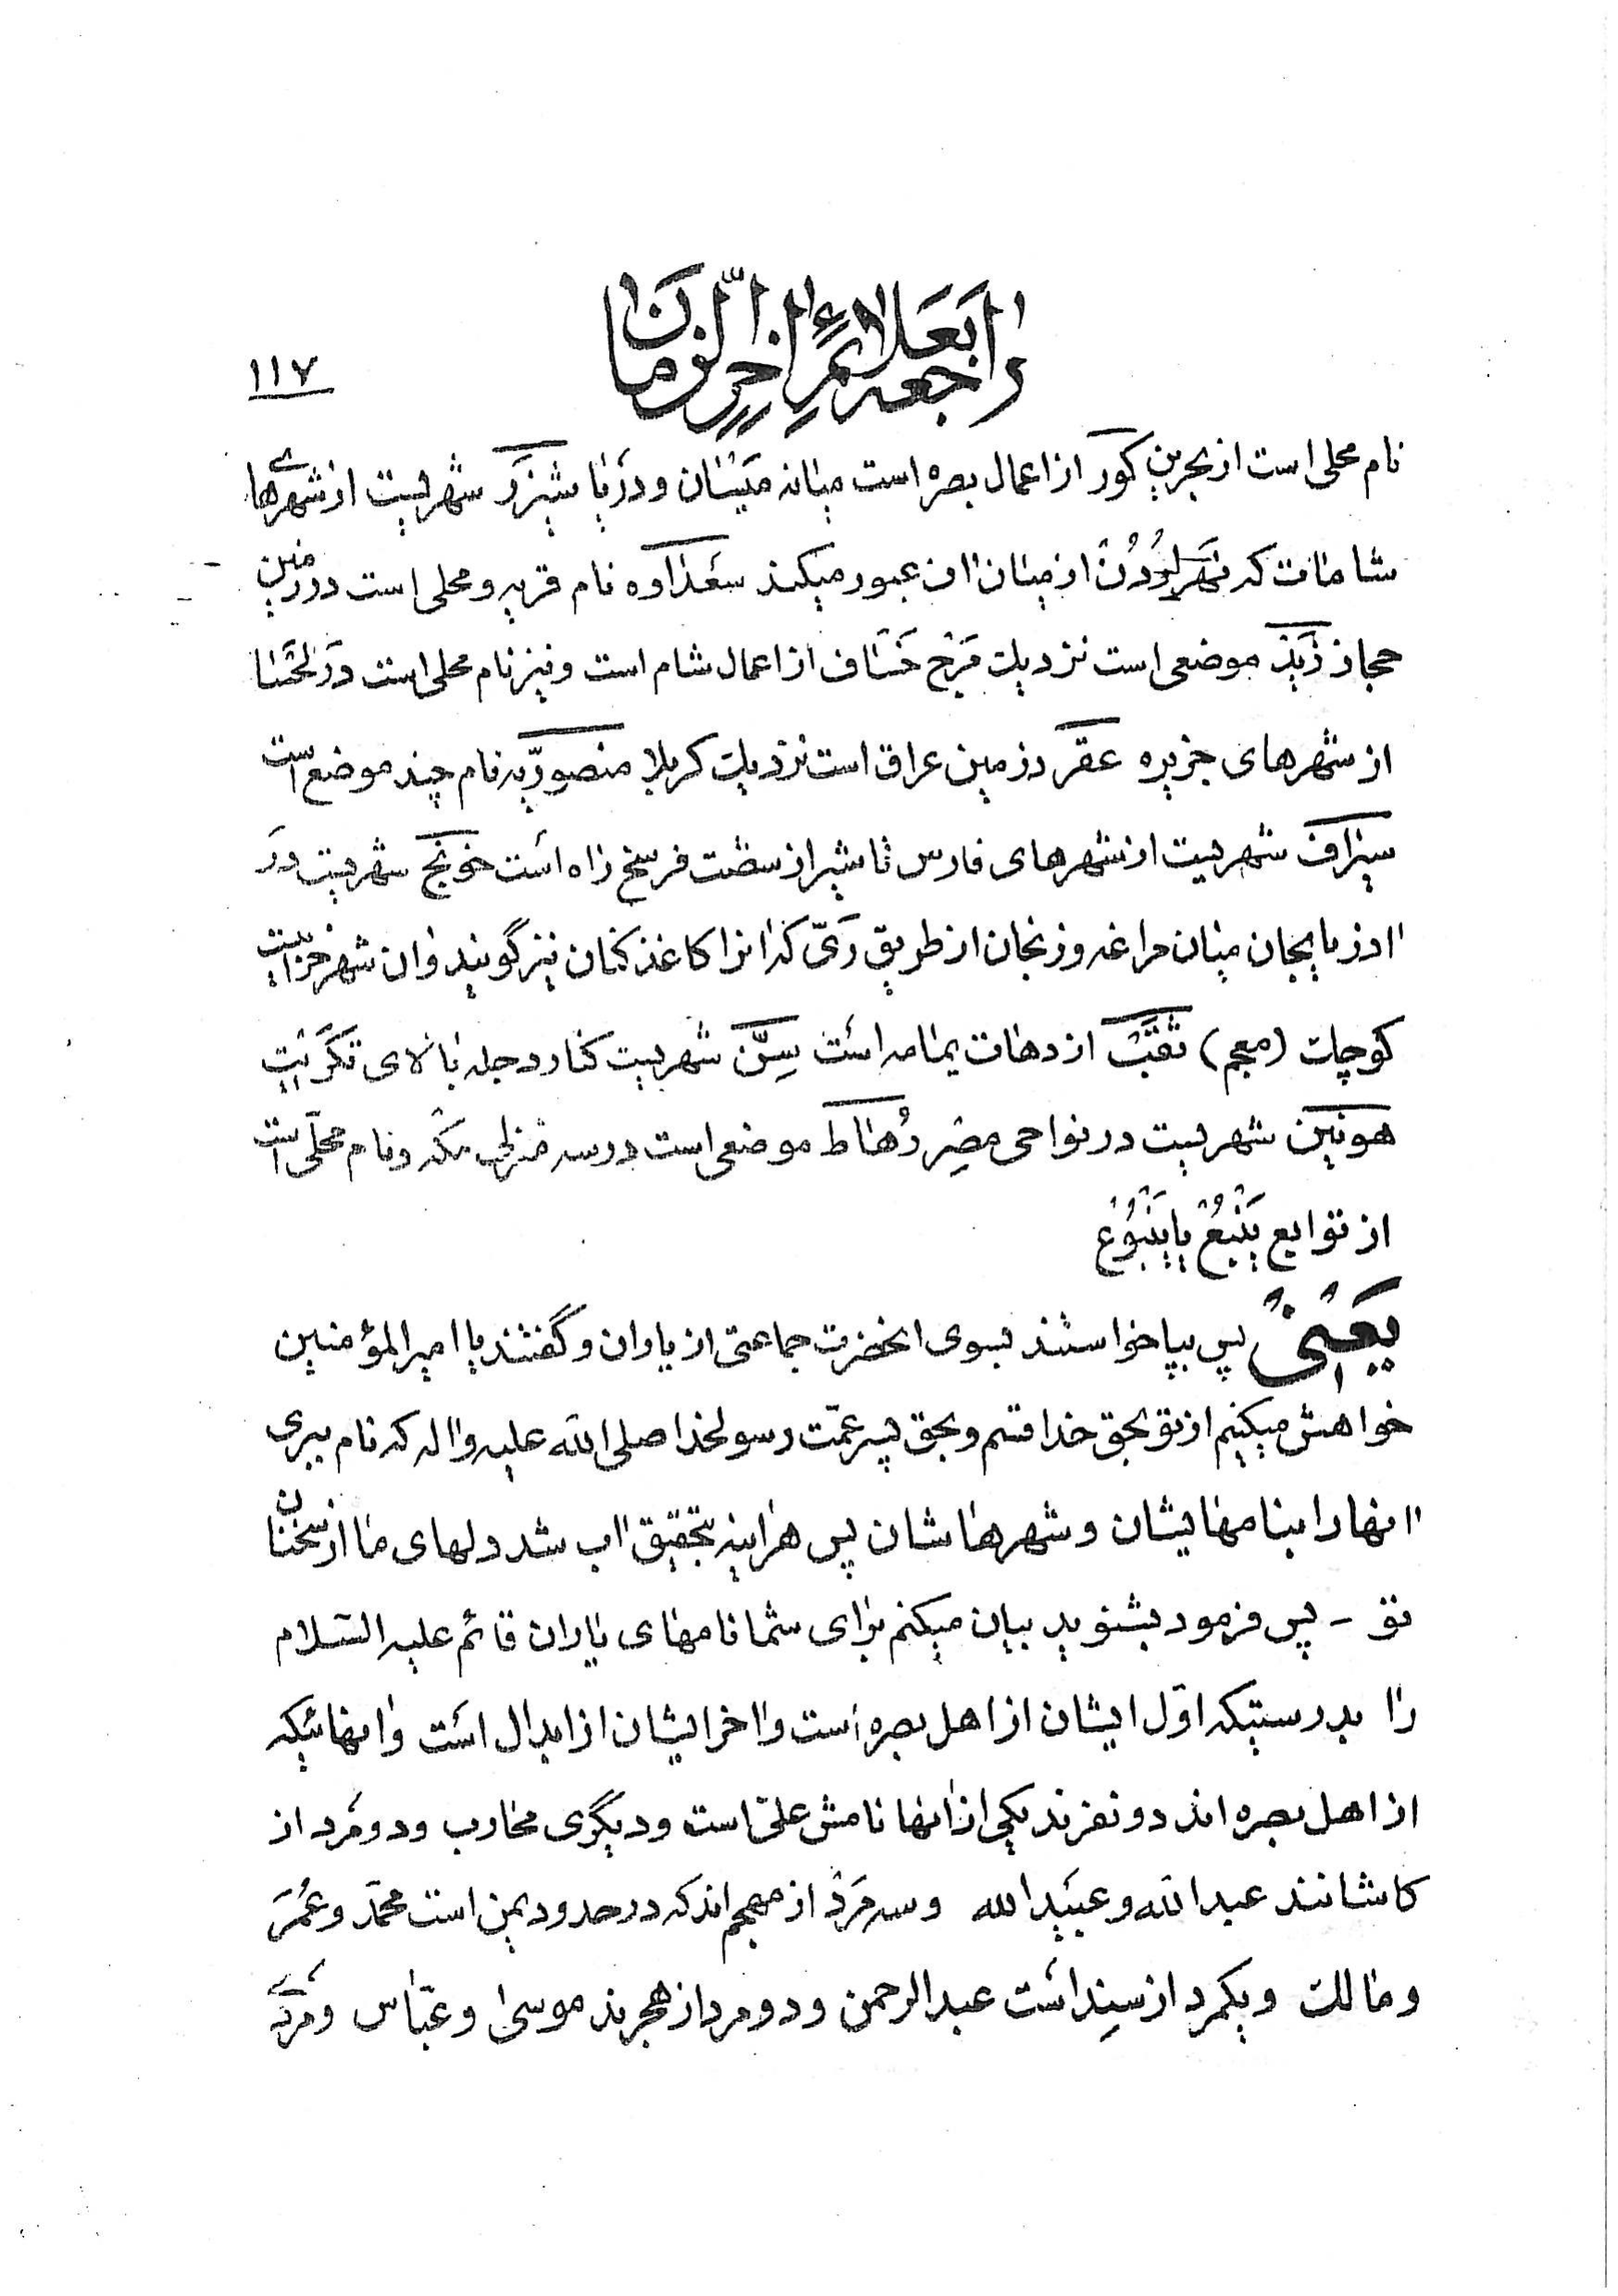 راجعه بعلائم اخر الزمان
۱۱۷
نام محلی است از بحرین کور از اعمال بصره است میانه میسان و دریا شیزر شهریست از شهرهای
شامات که نهر اُردُن از میان ان عبور میکند سعداوه نام قریه و محلی است در زمین
حجاز زَیذ موضعی است نزدیک مَرْج خَسٰاف از اعمال شام است و نیز نام محلی است در
از شهرهای جزیره عقر در زمین عراق است نزدیک کربلا منصوریّه نام چند موضع است
سیراف شهریست از شهرهای فارس تا شیراز شصت فرسخ راه است خونَج شهریست در
اذربایجان میان مراغه و زنجان از طریق رَیّ که انرا کاغذ کنان نیز گویند و ان شهر خرابیست
کوچک (معجم) ثَقَبْ از دهات یمامه است سِنّ شهریست کنار دجله بالای تَکریت
هونین شهریست در نواحی مِصر رُهاط موضعی است در سه منزلی مکّه و نام محلّی است
از توابع یَنْبُعْ یا یَنْبُوُع
یَعنی پس بپاخواستند بسوی انحضرت جماعتی از یاوران و گفتند یا امیر المؤمنین
خواهش میکنیم از تو بحق خدا قسم و بحق پسر عمّت رسولخدا صلی الله علیه و اله که نام ببری
انها را بنامهایشان و شهرهاشان پس هراینه بتحقیق اب شد دلهای ما از سخنان
تو - پس فرمود بشنوید بیان میکنم برای شما نامهای یاران قائم علیه السّلام
را بدرستیکه اوّل ایشان از اهل بصره است و اخر ایشان از ابدال است و انهائیکه
از اهل بصره اند دو نفرند یکی از انها نامش علی است و دیگری محارب و دو مرد از
کاشانند عبد الله و عبید الله و سه مَرد از مهجم اند که در حدود یمن است محمّد و عُمَر
و مالک و یکمرد از سِند است عبد الرحمن و دو مرد از هجرند موسی و عبّاس و مردی